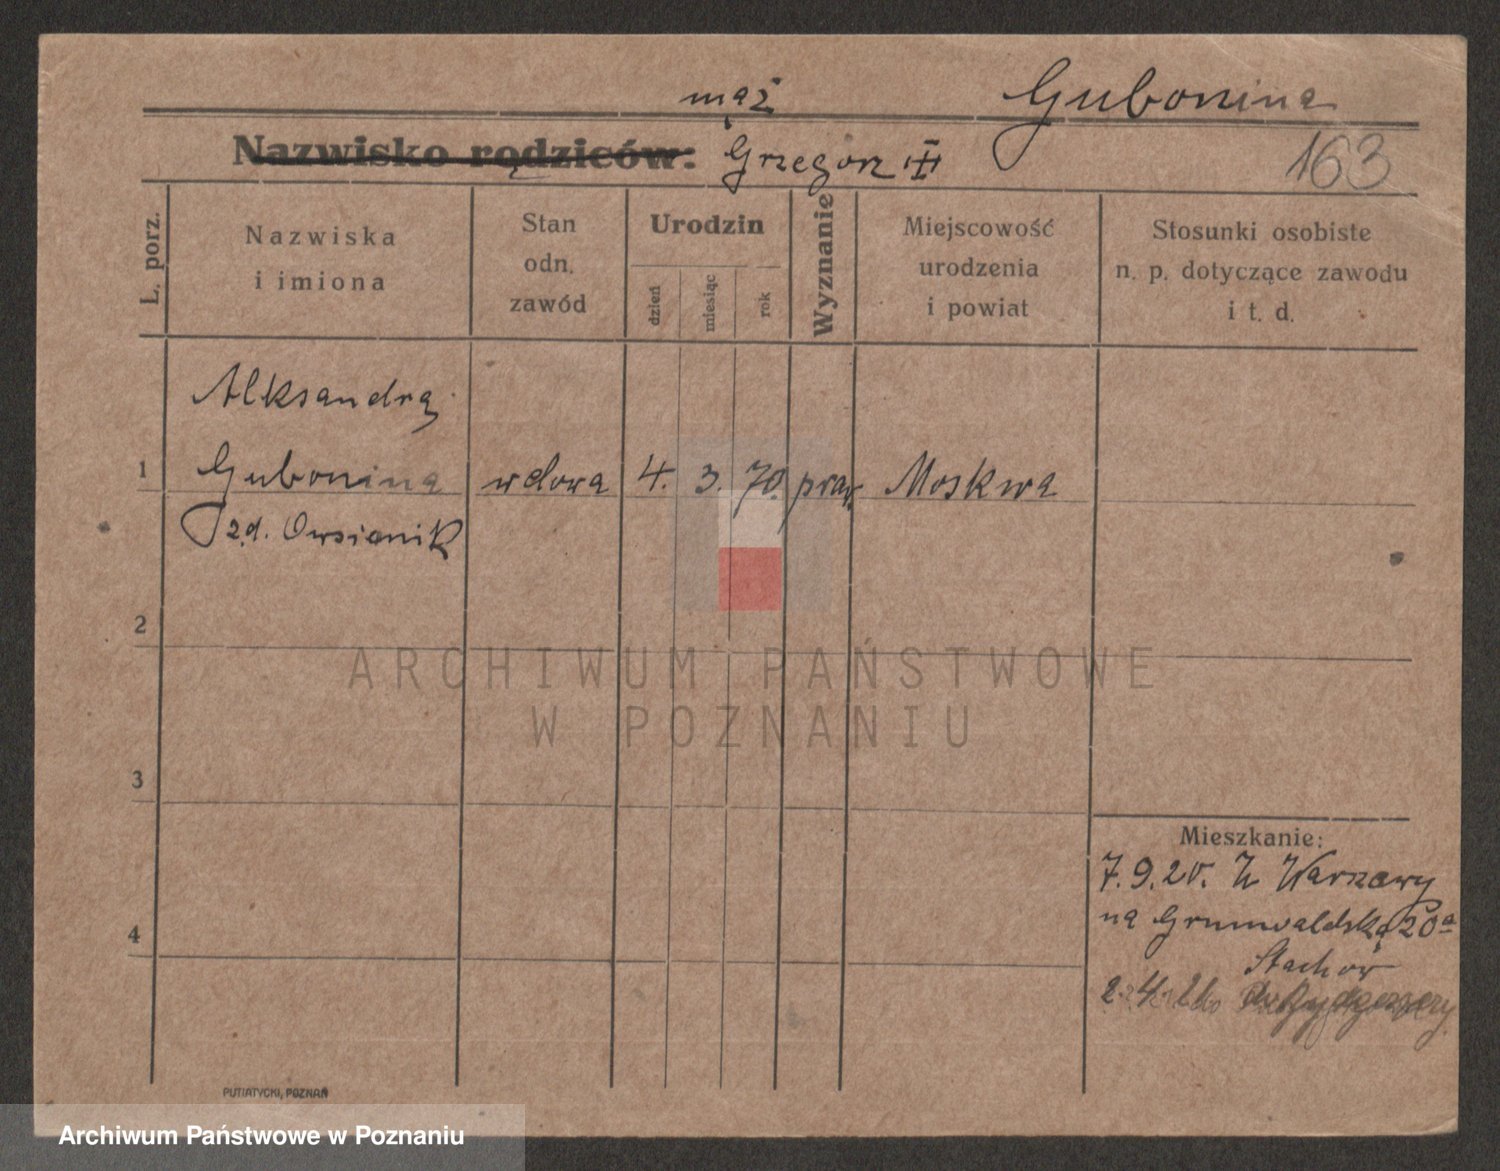 mąż Gubonina
Nazwisko rodziców: Grzegorz
163
L. porz.
Nazwiska
i imiona
Stan
odn.
zawód
Urodzin
dzień
miesiąc
rok
Wyznanie
Miejscowość
urodzenia
i powiat
Stosunki osobiste
n. p. dotyczące zawodu
i t. d.
Aleksandra
1 Gubonina wdowa 4. 3. 70. praw. Moskwa
zd. Owsianik
2
3
4
Mieszkanie:
7.9.20. Z Warszawy
na Grunwaldską 20a
Stachów
2.4.21 do Bydgoszczy
PUTIATYCKI, POZNAŃ
ARCHIWUM PAŃSTWOWE
W POZNANIU
Archiwum Państwowe w Poznaniu